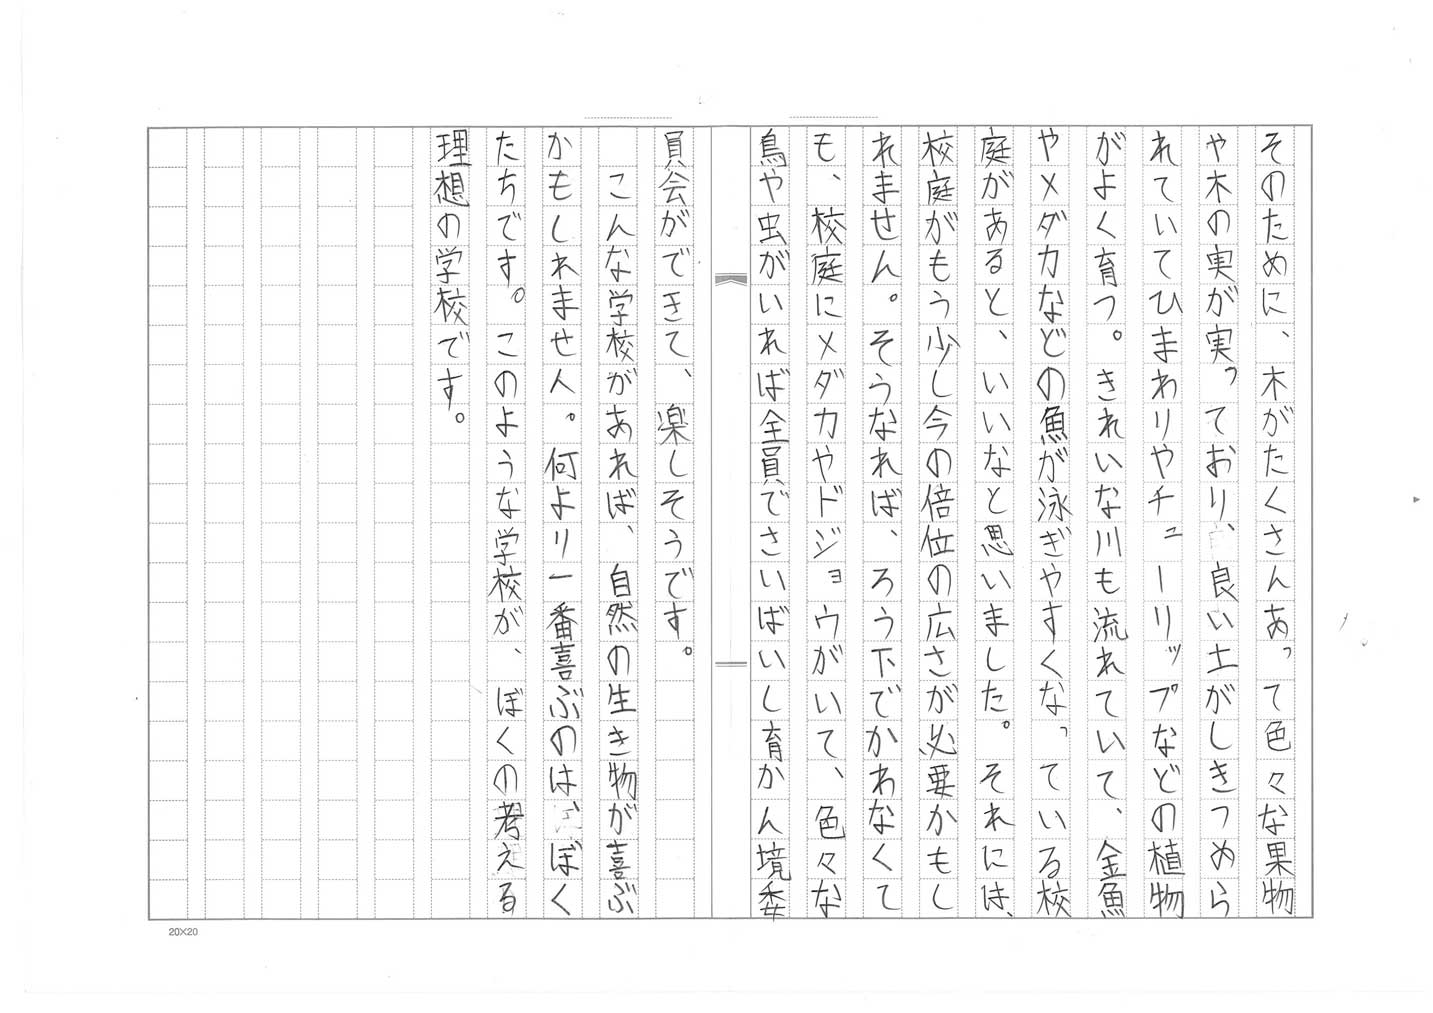 そのために、木がたくさんあって色々な果物
や木の実が実っており、良い土がしきつめら
れていてひまわりやチューリップなどの植物
がよく育つ。きれいな川も流れていて、金魚
やメダカなどの魚が泳ぎやすくなっている校
庭があると、いいなと思いました。それには、
校庭がもう少し今の倍位の広さが必要かもし
れません。そうなれば、ろう下でかわなくて
も、校庭にメダカやドジョウがいて、色々な
鳥や虫がいれば全員でさいばいし育かん境委
員会ができて、楽しそうです。
こんな学校があれば、自然の生き物が喜ぶ
かもしれません。何より一番喜ぶのは、ぼく
たちです。このような学校が、ぼくの考える
理想の学校です。
20×20